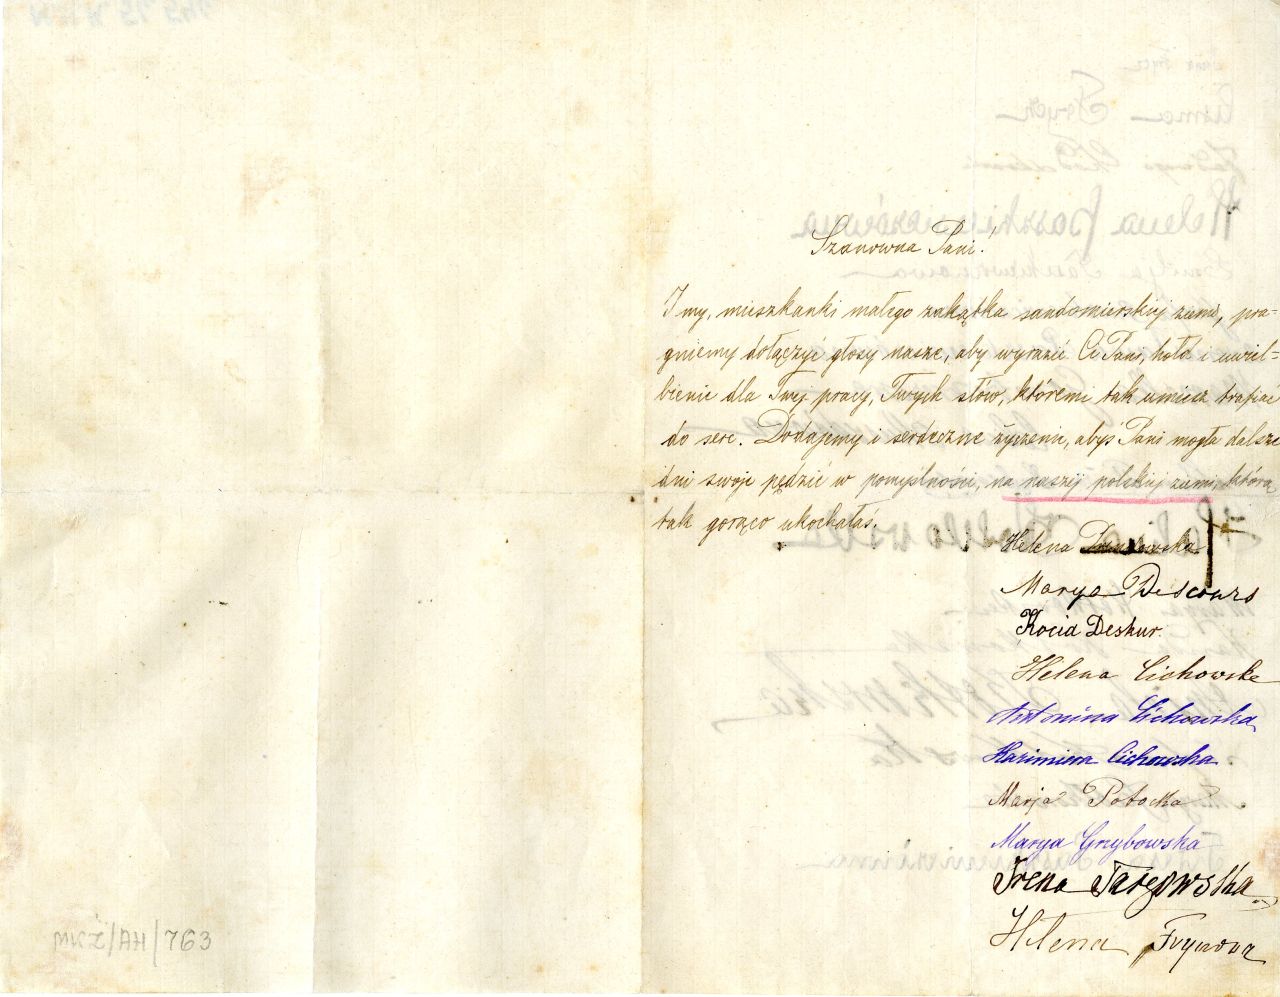 Szanowna Pani!
I my, mieszkanki małego zakątka sandomierskiej ziemi, pra-
gniemy dołączyć głosy nasze, aby wyrazić Ci Pani, hołd i uwiel-
bienie dla Twej pracy, Twych słów, któremi tak umiesz trafiać
do serc. Dodajemy i serdeczne życzenie, abyś Pani mogła dalsze
dni swoje pędzić w pomyślności, na naszej polskiej ziemi, którą
tak gorąco ukochałaś.
Helena
Marya Descours
Kocia Deskur.
Helena Cichowska
Antonina Cichowska
Kazimiera Cichowska
Marja Potocka
Marya Grzybowska
Irena Targowska
Helena Frycowa
MNKi/AH/763